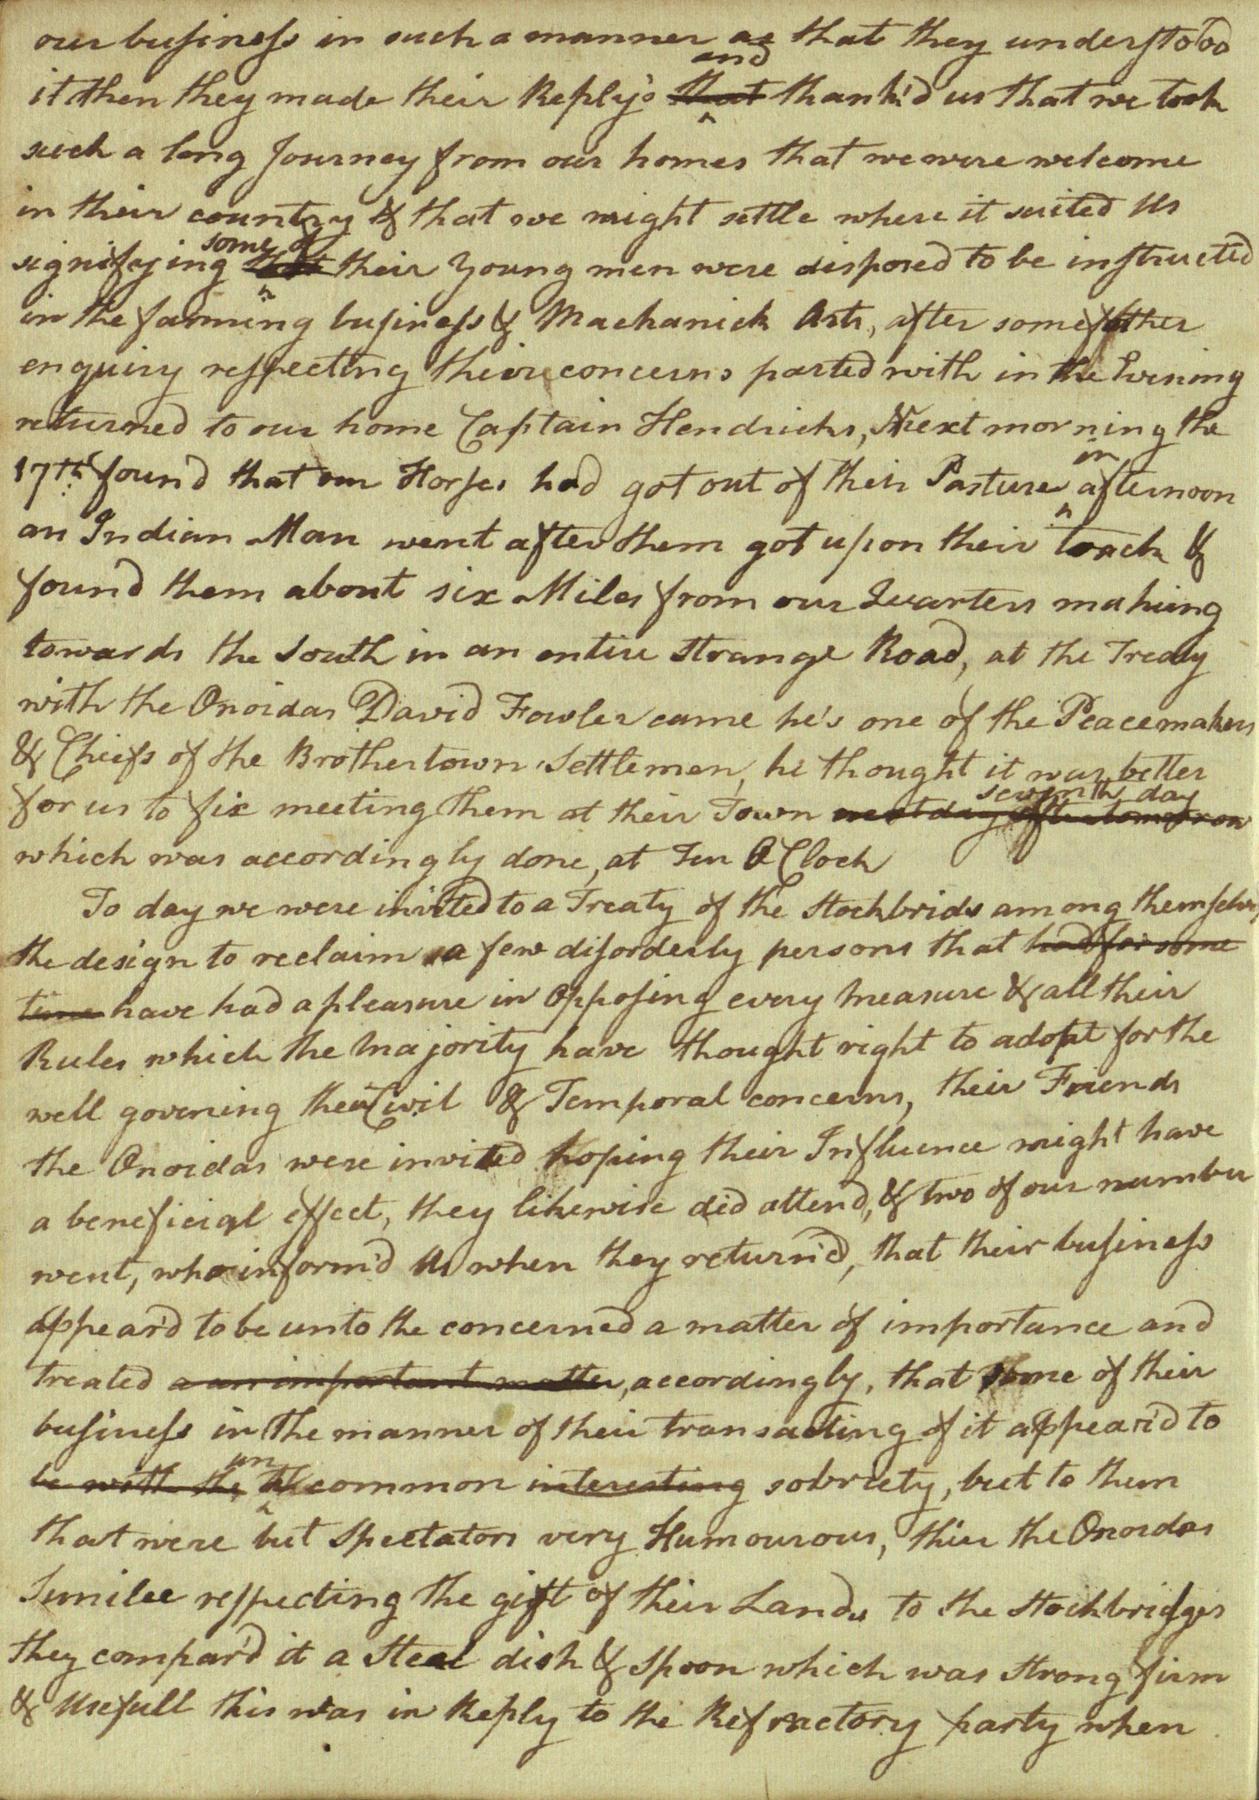 our business in such a manner as that they understood
it then they made their Reply's that and thank'd us that we took
such a long Journey from our homes that we were welcome
in their country & that we might settle where it suited us
signifying some of their Young men were disposed to be instructed
in the farming business & Machanick Arts, after some other
enquiry respecting their concerns parted with in the Evening
returned to our home Captain Hendricks, Next morning the
17th found that our Horses had got out of their Pasture in afternoon
an Indian Man went after them got upon their track &
found them about six Miles from our Quarters making
towards the South in an entire strange Road, at the Treaty
with the Onoidas David Fowler came he's one of the Peacemakers
& Chiefs of the Brothertown Settlemen, he thought it was better
for us to fix meeting them at their Town next day after tomorrow seventh day
which was accordingly done, at Ten O Clock
To day we were invited to a Treaty of the Stockbrids among themselves
the design to reclaim a few disorderly persons that had for some
time have had a pleasure in Opposing every Measure & all their
Rules which the Majority have thought right to adopt for the
well govening their Civil & Temporal concerns, their Friends
the Onoidas were invited hoping their Influence might have
a beneficial effect, they likewise did attend, & two of our number
went, who inform'd us when they return'd, that their business
appear'd to be unto the concerned a matter of importance and
treated a an important matter, accordingly, that some of their
business in the manner of their transacting of it appear'd to
be with the un common interesting sobriety, but to them
that were but Spectators very Humourous, thier the Onoidas
Similee respecting the gift of their Lands to the Stockbridges
they compar'd it a Steal dish & spoon which was strong firm
& Usefull this was in Reply to the Refractory party when